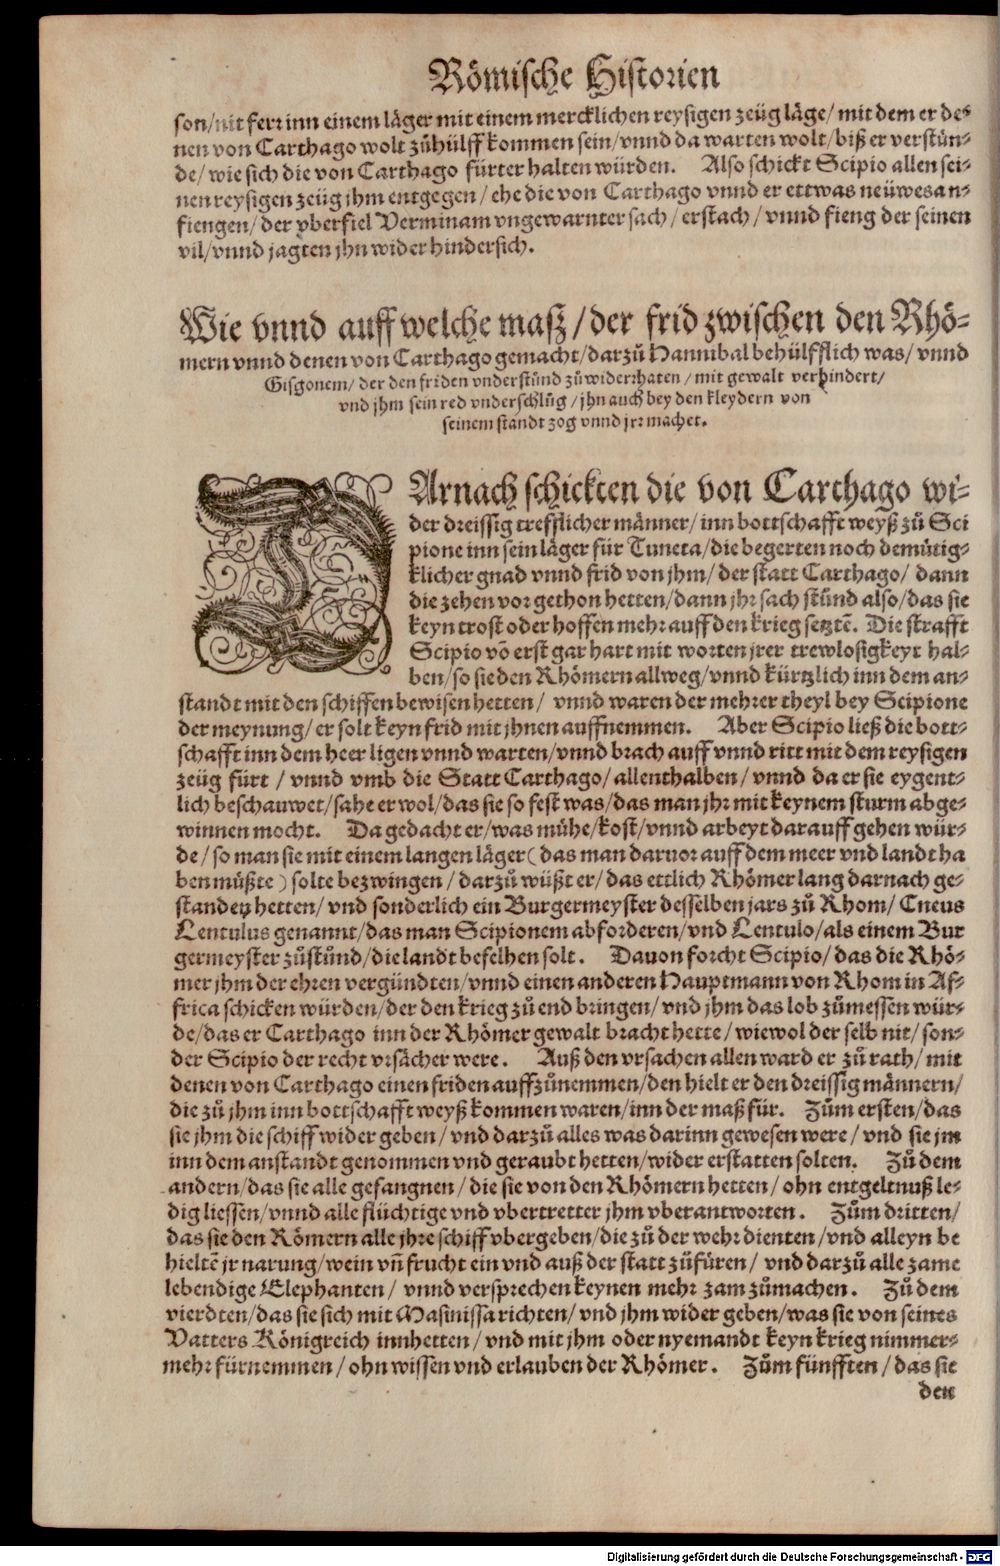 Römische Historien
son/nit ferꝛ inn einem läger mit einem mercklichen reysigen zeüg läge/ mit dem er de⸗
nen von Carthago wolt zůhülff kommen sein/vnnd da warten wolt/biß er verstůn⸗
de/ wie sich die von Carthago fürter halten würden. Also schickt Scipio allen sei⸗
nen reysigen zeüg jhm entgegen/ ehe die von Carthago vnnd er ettwas neüwes an⸗
fiengen/ der vberfiel Verminam vngewarnter sach/ erstach/ vnnd fieng der seinen
vil/vnnd jagten jhn wider hindersich.
Wie vnnd auff welche masz/der frid zwischen den Rhö⸗
mern vnnd denen von Carthago gemacht/darzů Hannibal behülfflich was/ vnnd
Gisgonem/ der den friden vnderstůnd zů widerꝛhaten/ mit gewalt verhindert/
vnd jhm sein red vnderschlůg/jhn auch bey den kleydern von
seinem standt zog vnnd jrꝛ machet.
DArnach schickten die von Carthago wi⸗
der dreissig trefflicher männer/ inn bottschafft weyß zů Sci
pione inn sein läger für Tuneta/die begerten noch demütig⸗
klicher gnad vnnd frid von jhm/ der statt Carthago/ dann
die zehen vor gethon hetten/dann jhr sach stůnd also/das sie
keyn trost oder hoffen mehr auff den krieg setztē. Die strafft
Scipio vō erst gar hart mit worten jrer trewlosigkeyt hal⸗
ben/so sie den Rhömern allweg/vnnd kürtzlich inn dem an⸗
standt mit den schiffen bewisen hetten/ vnnd waren der mehrer theyl bey Scipione
der meynung/er solt keyn frid mit jhnen auffnemmen. Aber Scipio ließ die bott⸗
schafft inn dem heer ligen vnnd warten/vnnd brach auff vnnd ritt mit dem reysigen
zeüg fürt/ vnnd vmb die Statt Carthago/allenthalben/ vnnd da er sie eygent⸗
lich beschauwet/sahe er wol/das sie so fest was/das man jhr mit keynem sturm abge⸗
winnen mocht. Da gedacht er/was mühe/kost/vnnd arbeyt darauff gehen wür⸗
de/so man sie mit einem langen läger(das man daruor auff dem meer vnd landt ha
ben müßte) solte bezwingen/ darzů wüßt er/das ettlich Rhömer lang darnach ge⸗
standen hetten/ vnd sonderlich ein Burgermeyster desselben jars zů Rhom/ Cneus
Lentulus genannt/das man Scipionem abforderen/vnd Lentulo/als einem Bur
germeyster zůstůnd/die landt befelhen solt. Dauon forcht Scipio/das die Rhö⸗
mer jhm der ehren vergündten/vnnd einen anderen Hauptmann von Rhom in Af⸗
frica schicken würden/der den krieg zů end bringen/vnd jhm das lob zůmessen wür⸗
de/das er Carthago inn der Rhömer gewalt bracht hette/wiewol der selb nit/son⸗
der Scipio der recht vrsächer were. Auß den vrsachen allen ward er zů rath/ mit
denen von Carthago einen friden auffzůnemmen/den hielt er den dreissig männern/
die zů jhm inn bottschafft weyß kommen waren/inn der maß für. Zům ersten/das
sie jhm die schiff wider geben/vnd darzů alles was darinn gewesen were/ vnd sie jm
inn dem anstandt genommen vnd geraubt hetten/wider erstatten solten. Zů dem
andern/das sie alle gefangnen/die sie von den Rhömern hetten/ ohn entgeltnuß le⸗
dig liessen/vnnd alle flüchtige vnd vbertretter jhm vberantworten. Zům dritten/
das sie den Römern alle jhre schiff vbergeben/die zů der wehr dienten/vnd alleyn be
hieltē jr narung/wein vñ frucht ein vnd auß der statt zůfüren/ vnd darzů alle zame
lebendige Elephanten/ vnnd versprechen keynen mehr zam zůmachen. Zů dem
vierdten/das sie sich mit Masinissa richten/vnd jhm wider geben/was sie von seines
Vatters Königreich innhetten/vnd mit jhm oder nyemandt keyn krieg nimmer⸗
mehr fürnemmen/ohn wissen vnd erlauben der Rhömer. Zům fünfften/das sie
den
Digitalisierung gefördert durch die Deutsche Forschungsgemeinschaft - DFG